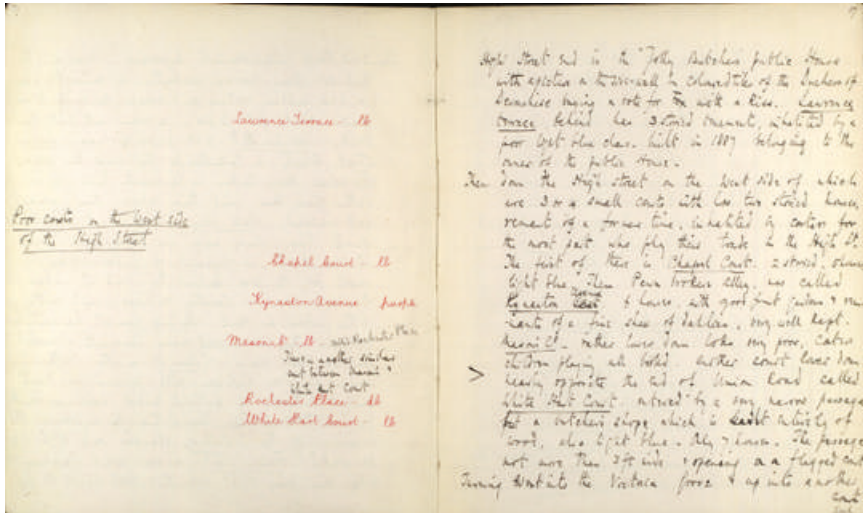 Lawrence Terrace - lb
Poor courts on the West side
of the High Street
Chapel Court - lb
Kynaston Avenue - purple
Masonic - lb - now Rochester Place
There is another similar
court between Masonic &
White Hart Court
Rochester Place - lb
White Hart Court - lb
High Street end is the "Jolly Butchers public House
with a picture on the side-wall in coloured tiles of the Duchess of
Devonshire buying a vote for Fox with a Kiss. Lawrence
terrace behind has 3 storied tenements, inhabited by a
poor light blue class. built in 1887 belonging to the
owner of the public House.
Then down the High Street on the West side of which
are 3 or 4 small courts with low two storied houses,
remnant of a former time, inhabited by costers for
the most part who ply their trade in the High St.
The first of these is Chapel Court. 2 storied,
light blue. Then Pawn brokers alley, now called
Kynaston Avenue 6 houses, with good front gardens &
of a fine show of dahlias, very well kept.
Masonic Ct. rather lower down looks very poor,
children playing all Another court lower down
nearly opposite the end of Union Road called
White Hart Court. entered by a very narrow passage
by a butchers shop, which is built entirely of
wood, also light blue. Only 7 houses. The passage
not more than 3 ft wide & opening on a flagged court
Turning West into the Victoria & up into another
Court